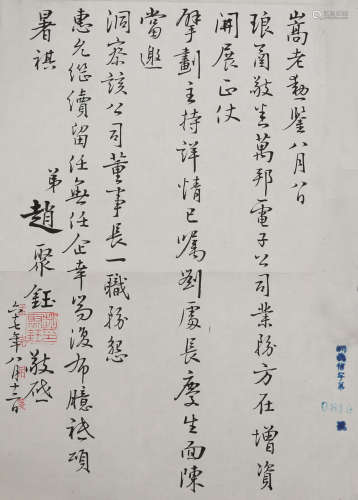 嵩老勛鑒八月八日
琅函敬悉萬邦電子公司業務方在增資
開展正仗
擘劃主持詳情已囑劉處長慶生面陳
當邀
洞察該公司董事長一職務懇
惠允繼續留任無任企幸耑復布臆祗頌
暑祺
弟趙聚鈺敬啟
六七年八月十二日